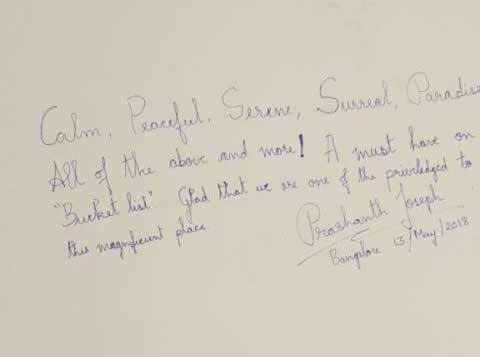 Calm, Peaceful, Serene, Surreal, Paradise
All of the above and more! A must have on
"Bucket list". Glad that we are one of the priviledged to
this magnificent place
Prashanth Joseph
Bangalore 13/May/2018